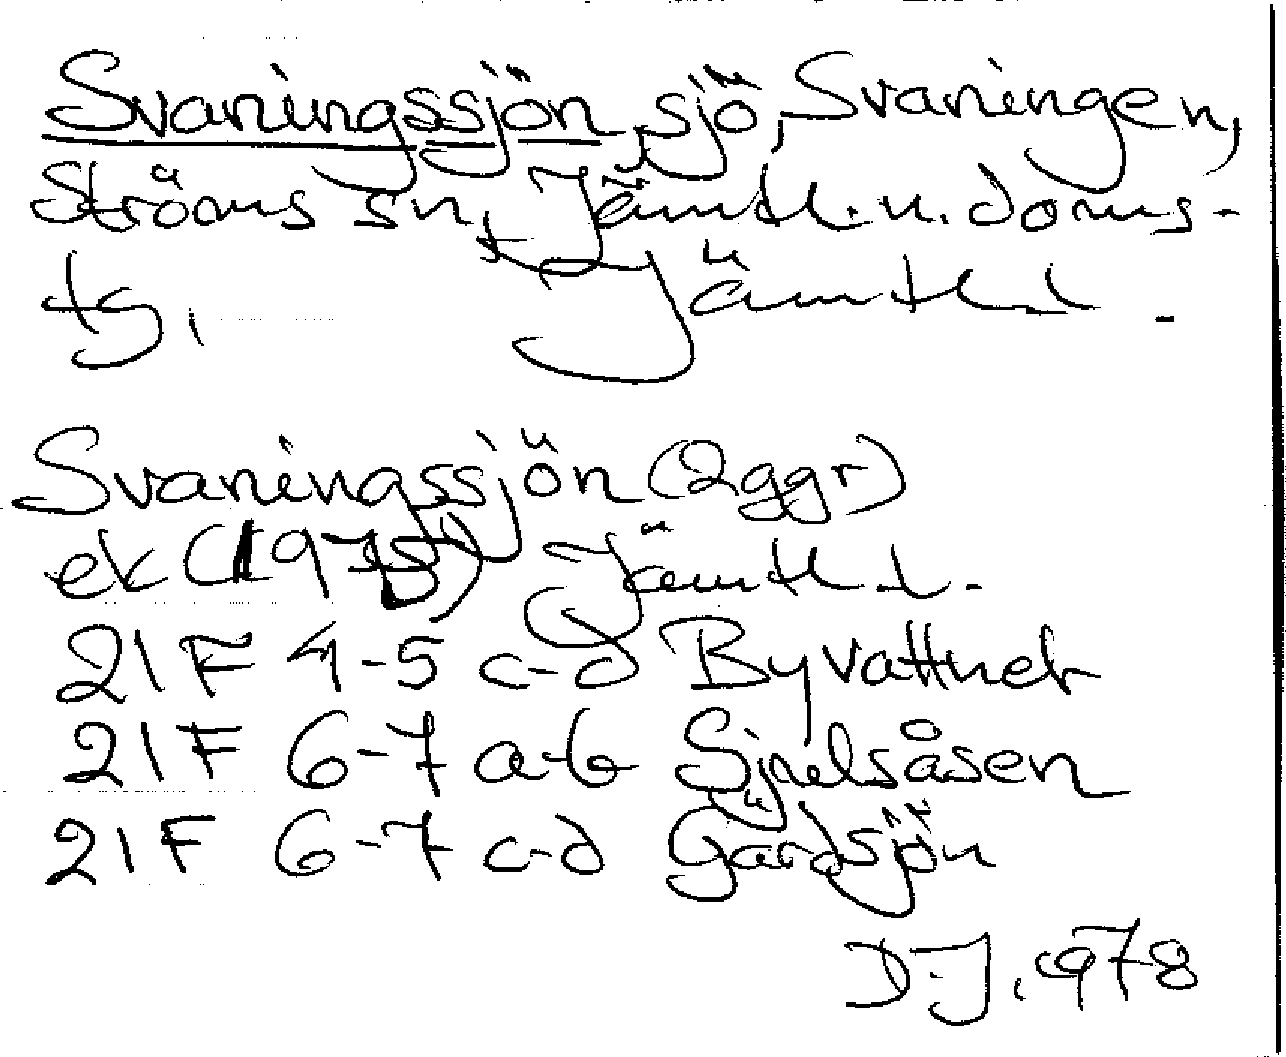 Svaningssjön, sjö, Svaningen,
Ströms sn, Jämtl. n. doms-
tg, Jämtl.
Svaningssjön (2ggr)
ek (1975) Jämtl l.
21F 4-5 c-d Byvattnet
21F 6-7 a-b Sjulsåsen
21F 6-7 c-d Gärdsjön
D-J. 1978